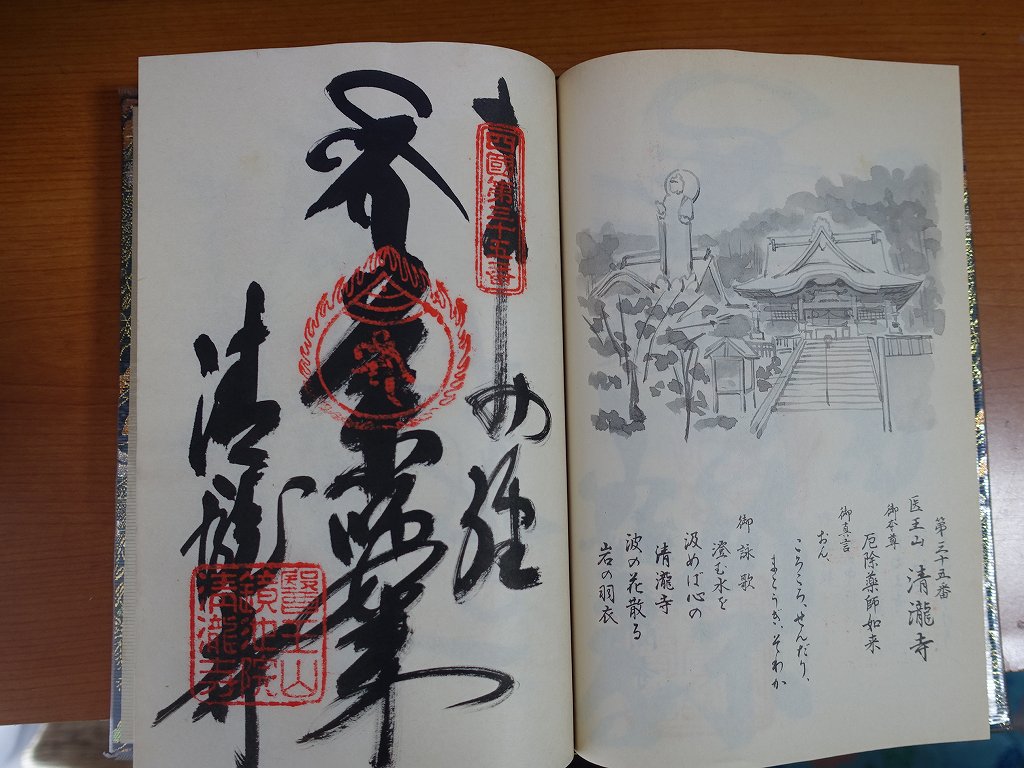 第三十五番
医王山 清瀧寺
御本尊
厄除薬師如来
御真言
おん、
ころころ、せんだり、
まとうぎ、そわか
御詠歌
澄む水を
汲めば心の
清瀧寺
波の花散る
岩の羽衣
四國第三十五番
清瀧寺
醫王山
鏡池院
清瀧寺